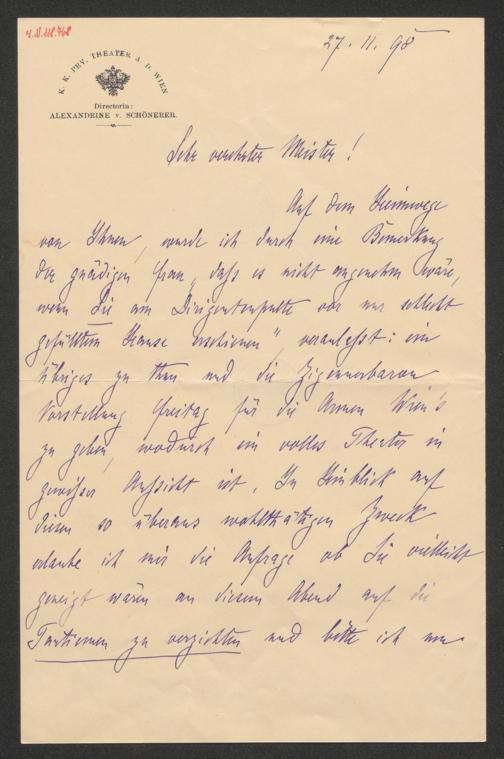 27. 11. 98
K. K. PRV. THEATER A. D. WIEN
Directorin:
ALEXANDRINE v. SCHÖNERER.
Sehr verehrter Meister!
Auf dem Heimwege
von Ihnen, wurde ich durch eine Bemerkung
der gnädigen Frau „daß es nicht angenehm wäre,
wenn Sie am Dirigentenpulte vor nur schlecht
gefülltem Hause erschienen", veranlaßt: ein
Übriges zu thun und die Zigeunerbaron
Vorstellung Freitag für die Armen Wien's
zu geben, wodurch ein volles Theater in
gewisser Aussicht ist. Im Hinblick auf
diesen so überaus wohlthätigen Zweck
erlaube ich mir die Anfrage ob Sie vielleicht
geneigt wären an diesem Abend auf die
Tantiemen zu verzichten und bitte ich um